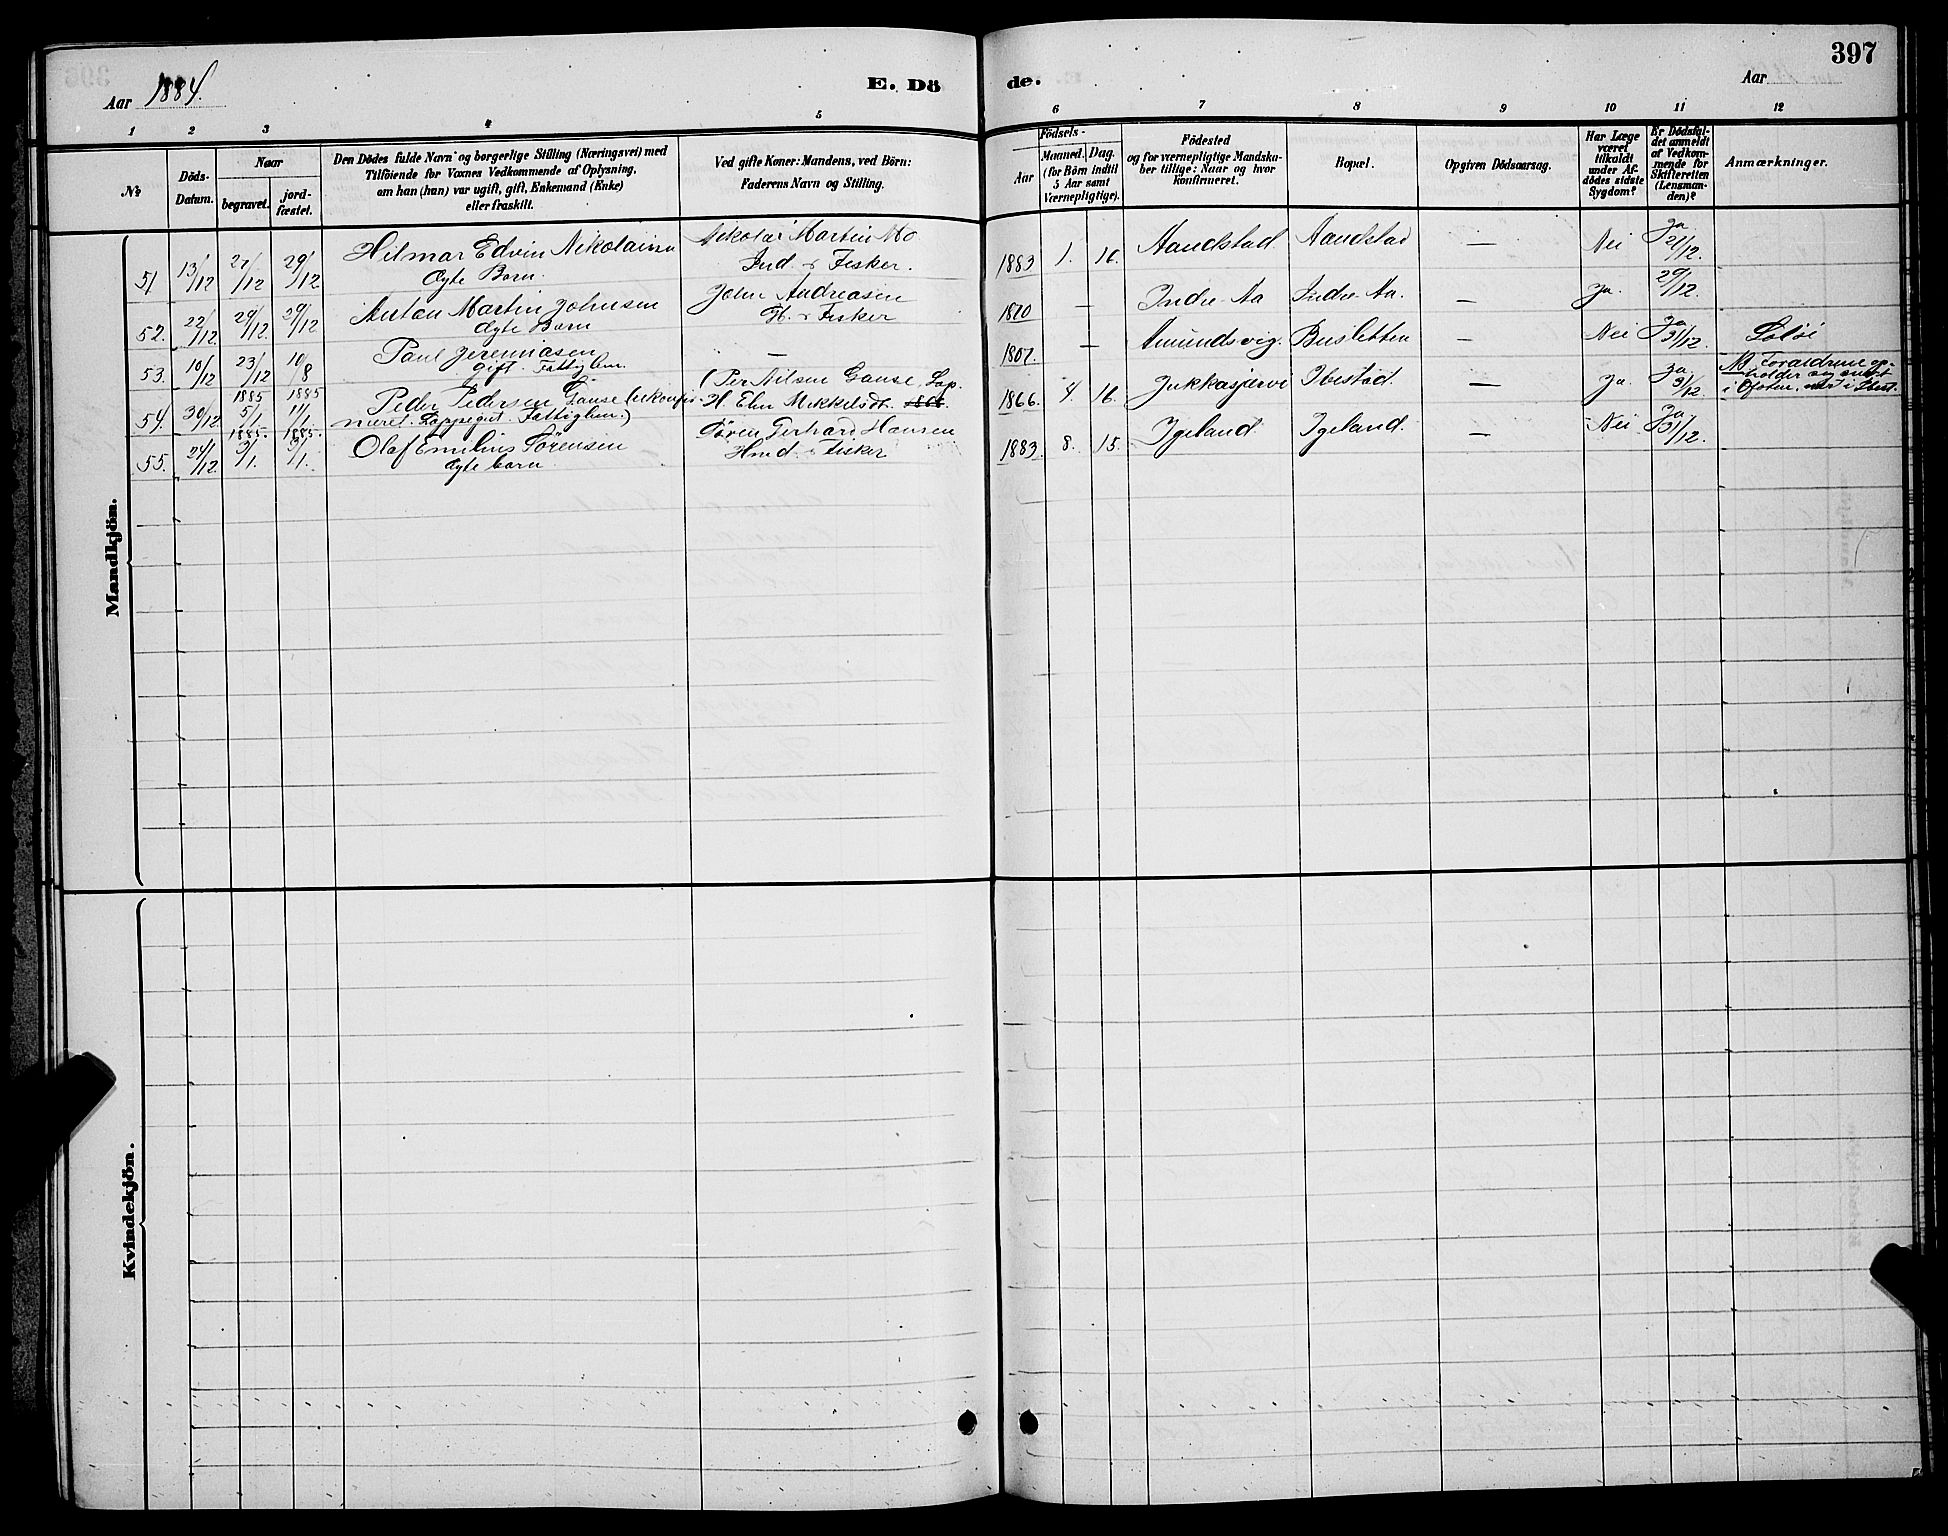 397
Aar 1884.
E. Dö
de.
Aar
1 2 3 4 5 6 7 8 9 10 11 12
№
Döds-
Datum.
Naar
begravet.
jord-
fæstet.
Den Dödes fulde Navn og borgerlige Stilling (Næringsvei) med
Tilföiende for Voxnes Vedkommende af Oplysning,
om han (hun) var ugift, gift, Enkemand (Enke)
eller fraskilt.
Ved gifte Koner: Mandens, ved Börn:
Faderens Navn og Stilling.
Födsels-
Aar
Maaned. Dag.
(for Börn indtil
5 Aar samt
Værnepligtige).
Födested
og for værnepligtige Mandska-
ber tillige: Naar og hvor
konfirmeret.
Bopæl.
Opgiven Dödsaarsag.
Har Læge
været
tilkaldt
under Af-
dödes sidste
Sygdom?
Er Dödsfal-
det anmeldt
af Vedkom-
mende for
Skifteretten
(Lensman-
den)?
Anmærkninger.
Mandkjön.
51 13/12 27/12 29/12 Hilmar Edvin Nikolaisen Nikolai Martin Mo 1883 1. 16. Aandstad Aandstad — Nei Ja 21/12.
Ægte Barn. Ind. & Fisker.
52. 22/12 29/12. 29/12 Anton Martin Johnsen John Andreasen 1870 — Indre Aa Indre Aa. — Ja. 29/12.
Ægte Barn H. & Fisker
53. 10/12 23/12 10/8 Paul Jeremiasen — 1807. — Amundsvig. Busletten — Nei Ja 31/12.
gift. Fattiglem.
54. 30/12. 1885 5/1 1885 11/1 Peder Pedersen Gause (ukonfir- (Per Nilsen Gause, Lap. 1866 4. 16. Jukkasjervi Ibestad. — Ja Ja. 31/12.
meret. Lappegut. Fattiglem.) H. Elen Mikkelsdt.
55. 24/12. 1885. 3/1. 1885. 3/1. Olaf Emilius Sørensen Søren Gerhard Hansen 1883 8. 15. Igeland Igeland. — Nei Ja 31/12.
Ægte barn Hmd. & Fisker
Kvindekjön.